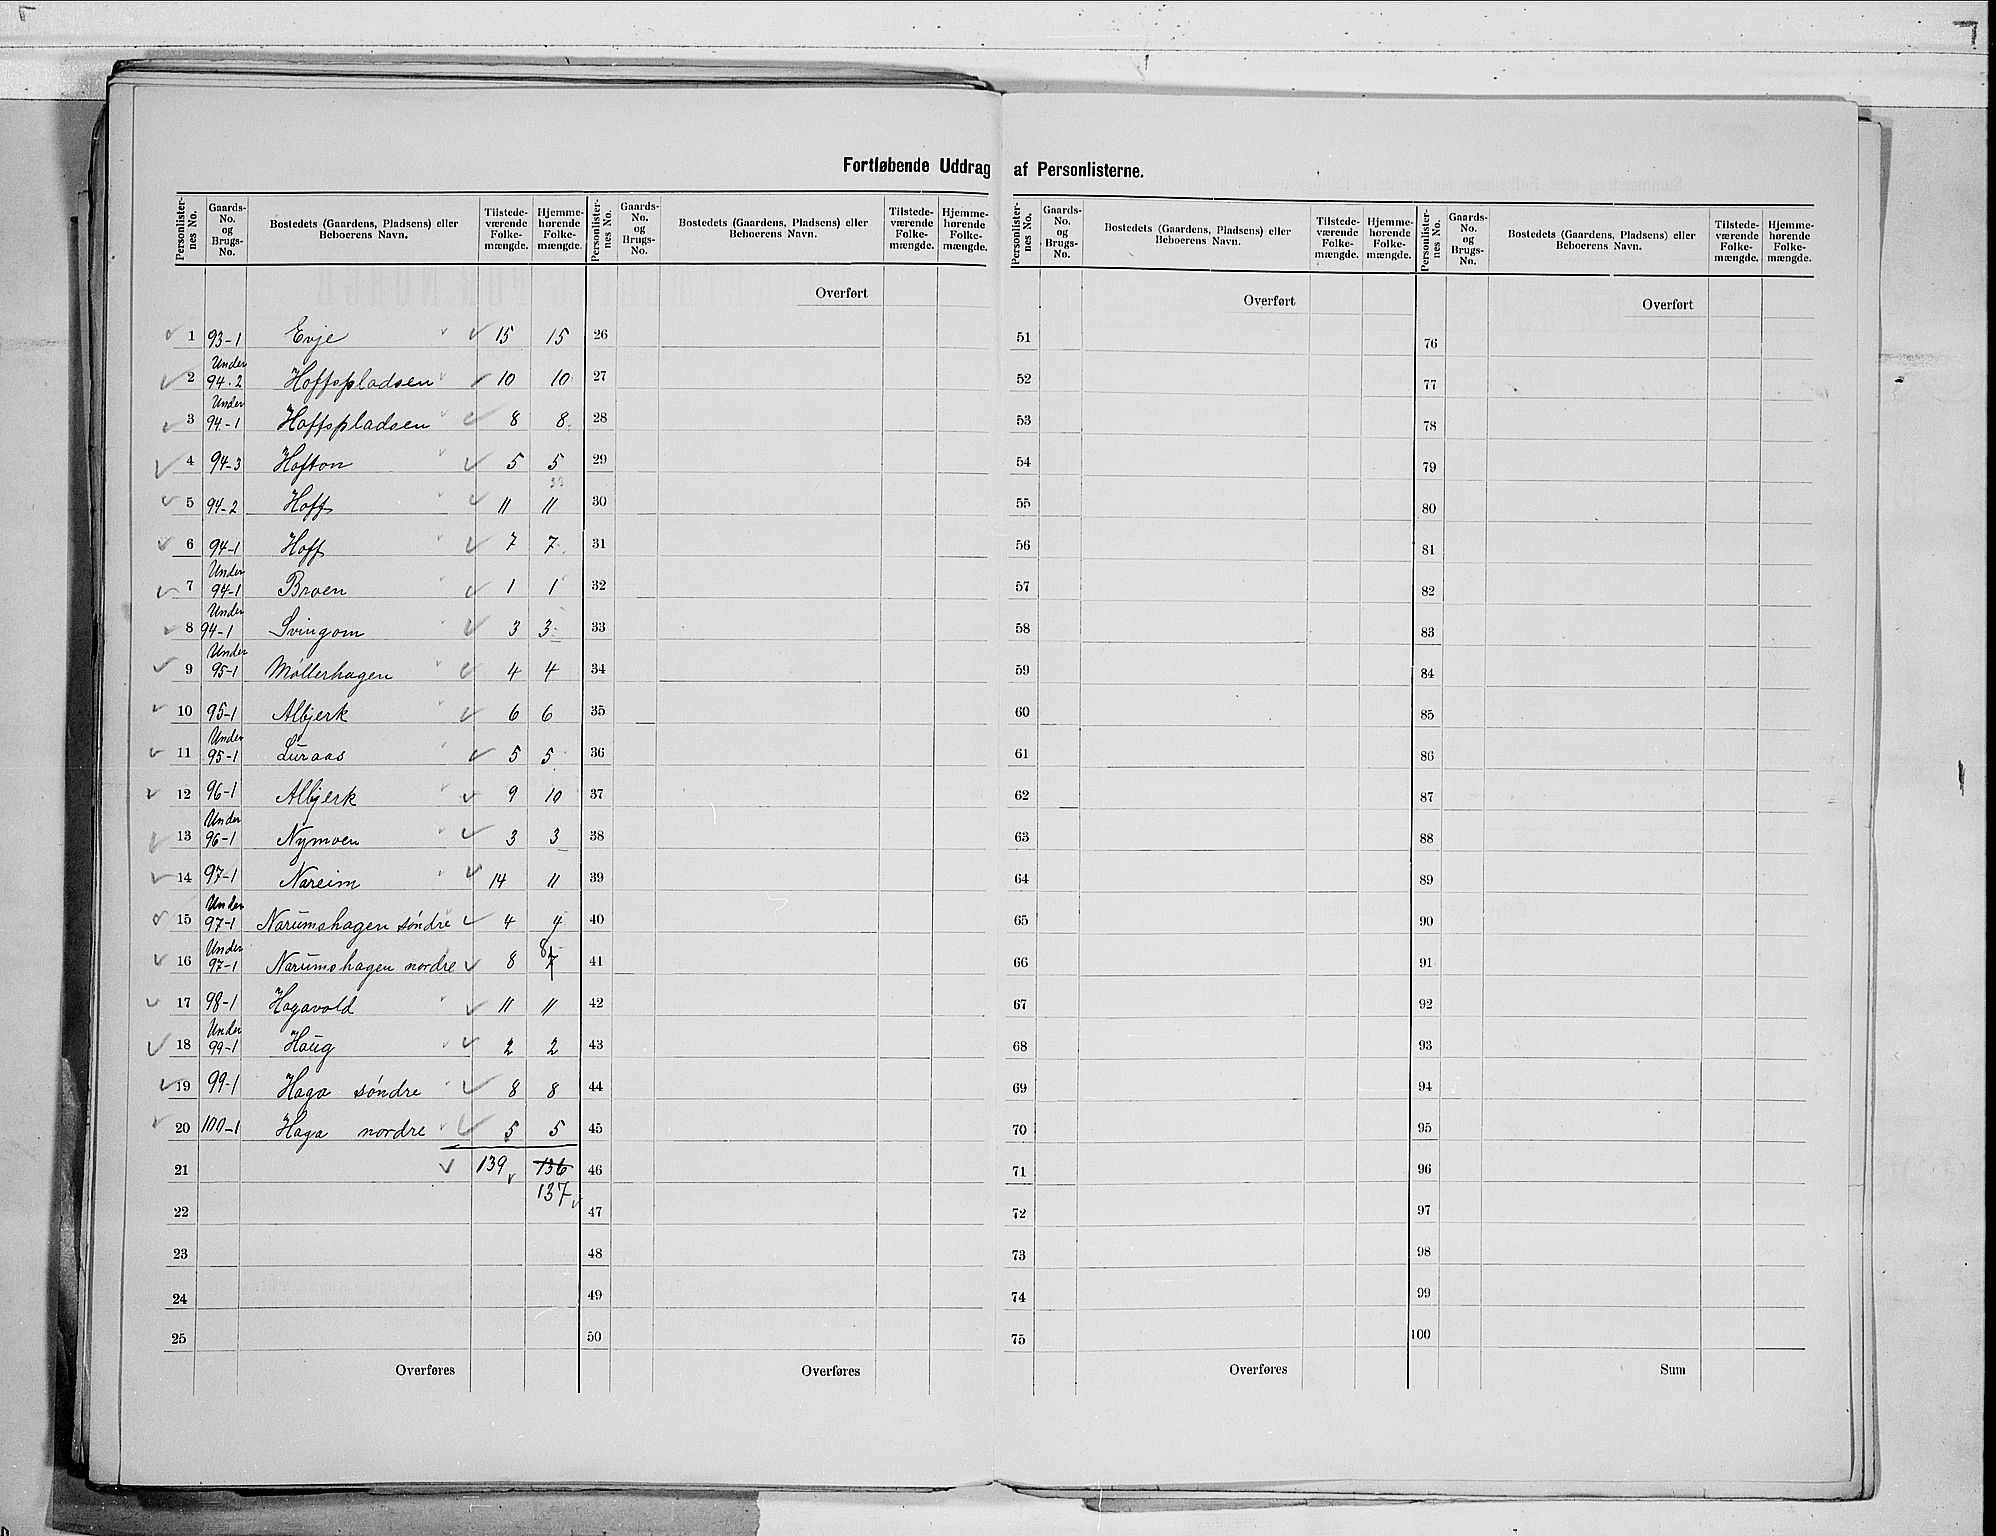 Fortløbende Uddrag af Personlisterne.
Personlister-nes No. Gaards-No. og Brugs-No. Bostedets (Gaardens, Pladsens) eller Beboerens Navn. Tilstede-værende Folke-mængde. Hjemme-hørende Folke-mængde. Personlister-nes No. Gaards-No. og Brugs-No. Bostedets (Gaardens, Pladsens) eller Beboerens Navn. Tilstede-værende Folke-mængde. Hjemme-hørende Folke-mængde. Personlister-nes No. Gaards-No. og Brugs-No. Bostedets (Gaardens, Pladsens) eller Beboerens Navn. Tilstede-værende Folke-mængde. Hjemme-hørende Folke-mængde. Personlister-nes No. Gaards-No. og Brugs-No. Bostedets (Gaardens, Pladsens) eller Beboerens Navn. Tilstede-værende Folke-mængde. Hjemme-hørende Folke-mængde.
Overført Overført Overført
1 93-1 Evje 15 15 26 51 76
2 Under 94.2 Hoffspladsen 10 10 27 52 77
3 Under 94-1 Hoffspladsen 8 8 28 53 78
4 94-3 Hofton 5 5 29 54 79
5 94-2 Hoff 11 11 30 55 80
6 94-1 Hoff 7 7 31 56 81
7 Under 94-1 Broen 1 1 32 57 82
8 Under 94-1 Svingom 3 3 33 58 83
9 Under 95-1 Møllerhagen 4 4 34 59 84
10 95-1 Albjerk 6 6 35 60 85
11 Under 95-1 Luraas 5 5 36 61 86
12 96-1 Albjerk 9 10 37 62 87
13 Under 96-1 Nymoen 3 3 38 63 88
14 97-1 Nareim 14 11 39 64 89
15 Under 97-1 Narumshagen søndre 4 4 40 65 90
16 Under 97-1 Narumshagen nordre 8 8 7 41 66 91
17 98-1 Hagavold 11 11 42 67 92
18 Under 99-1 Haug 2 2 43 68 93
19 99-1 Haga søndre 8 8 44 69 94
20 100-1 Haga nordre 5 5 45 70 95
21 139 136 46 71 96
137
22 47 72 97
23 48 73 98
24 49 74 99
25 50 75 100
Overføres Overføres Overføres Sum